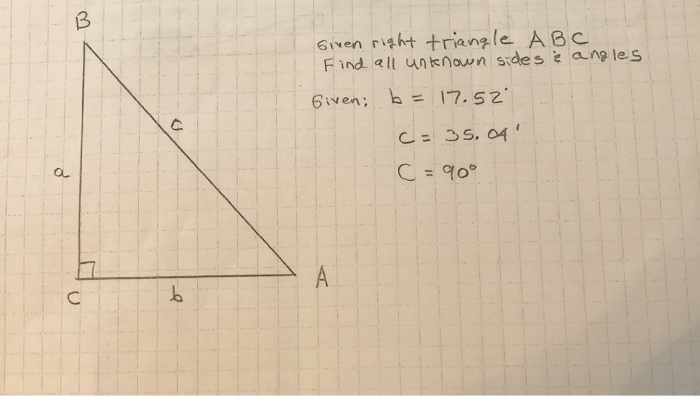 B
Given right triangle ABC
Find all unknown sides & angles
Given: b = 17.52'
c
c = 35.04'
a
C = 90°
A
C
b